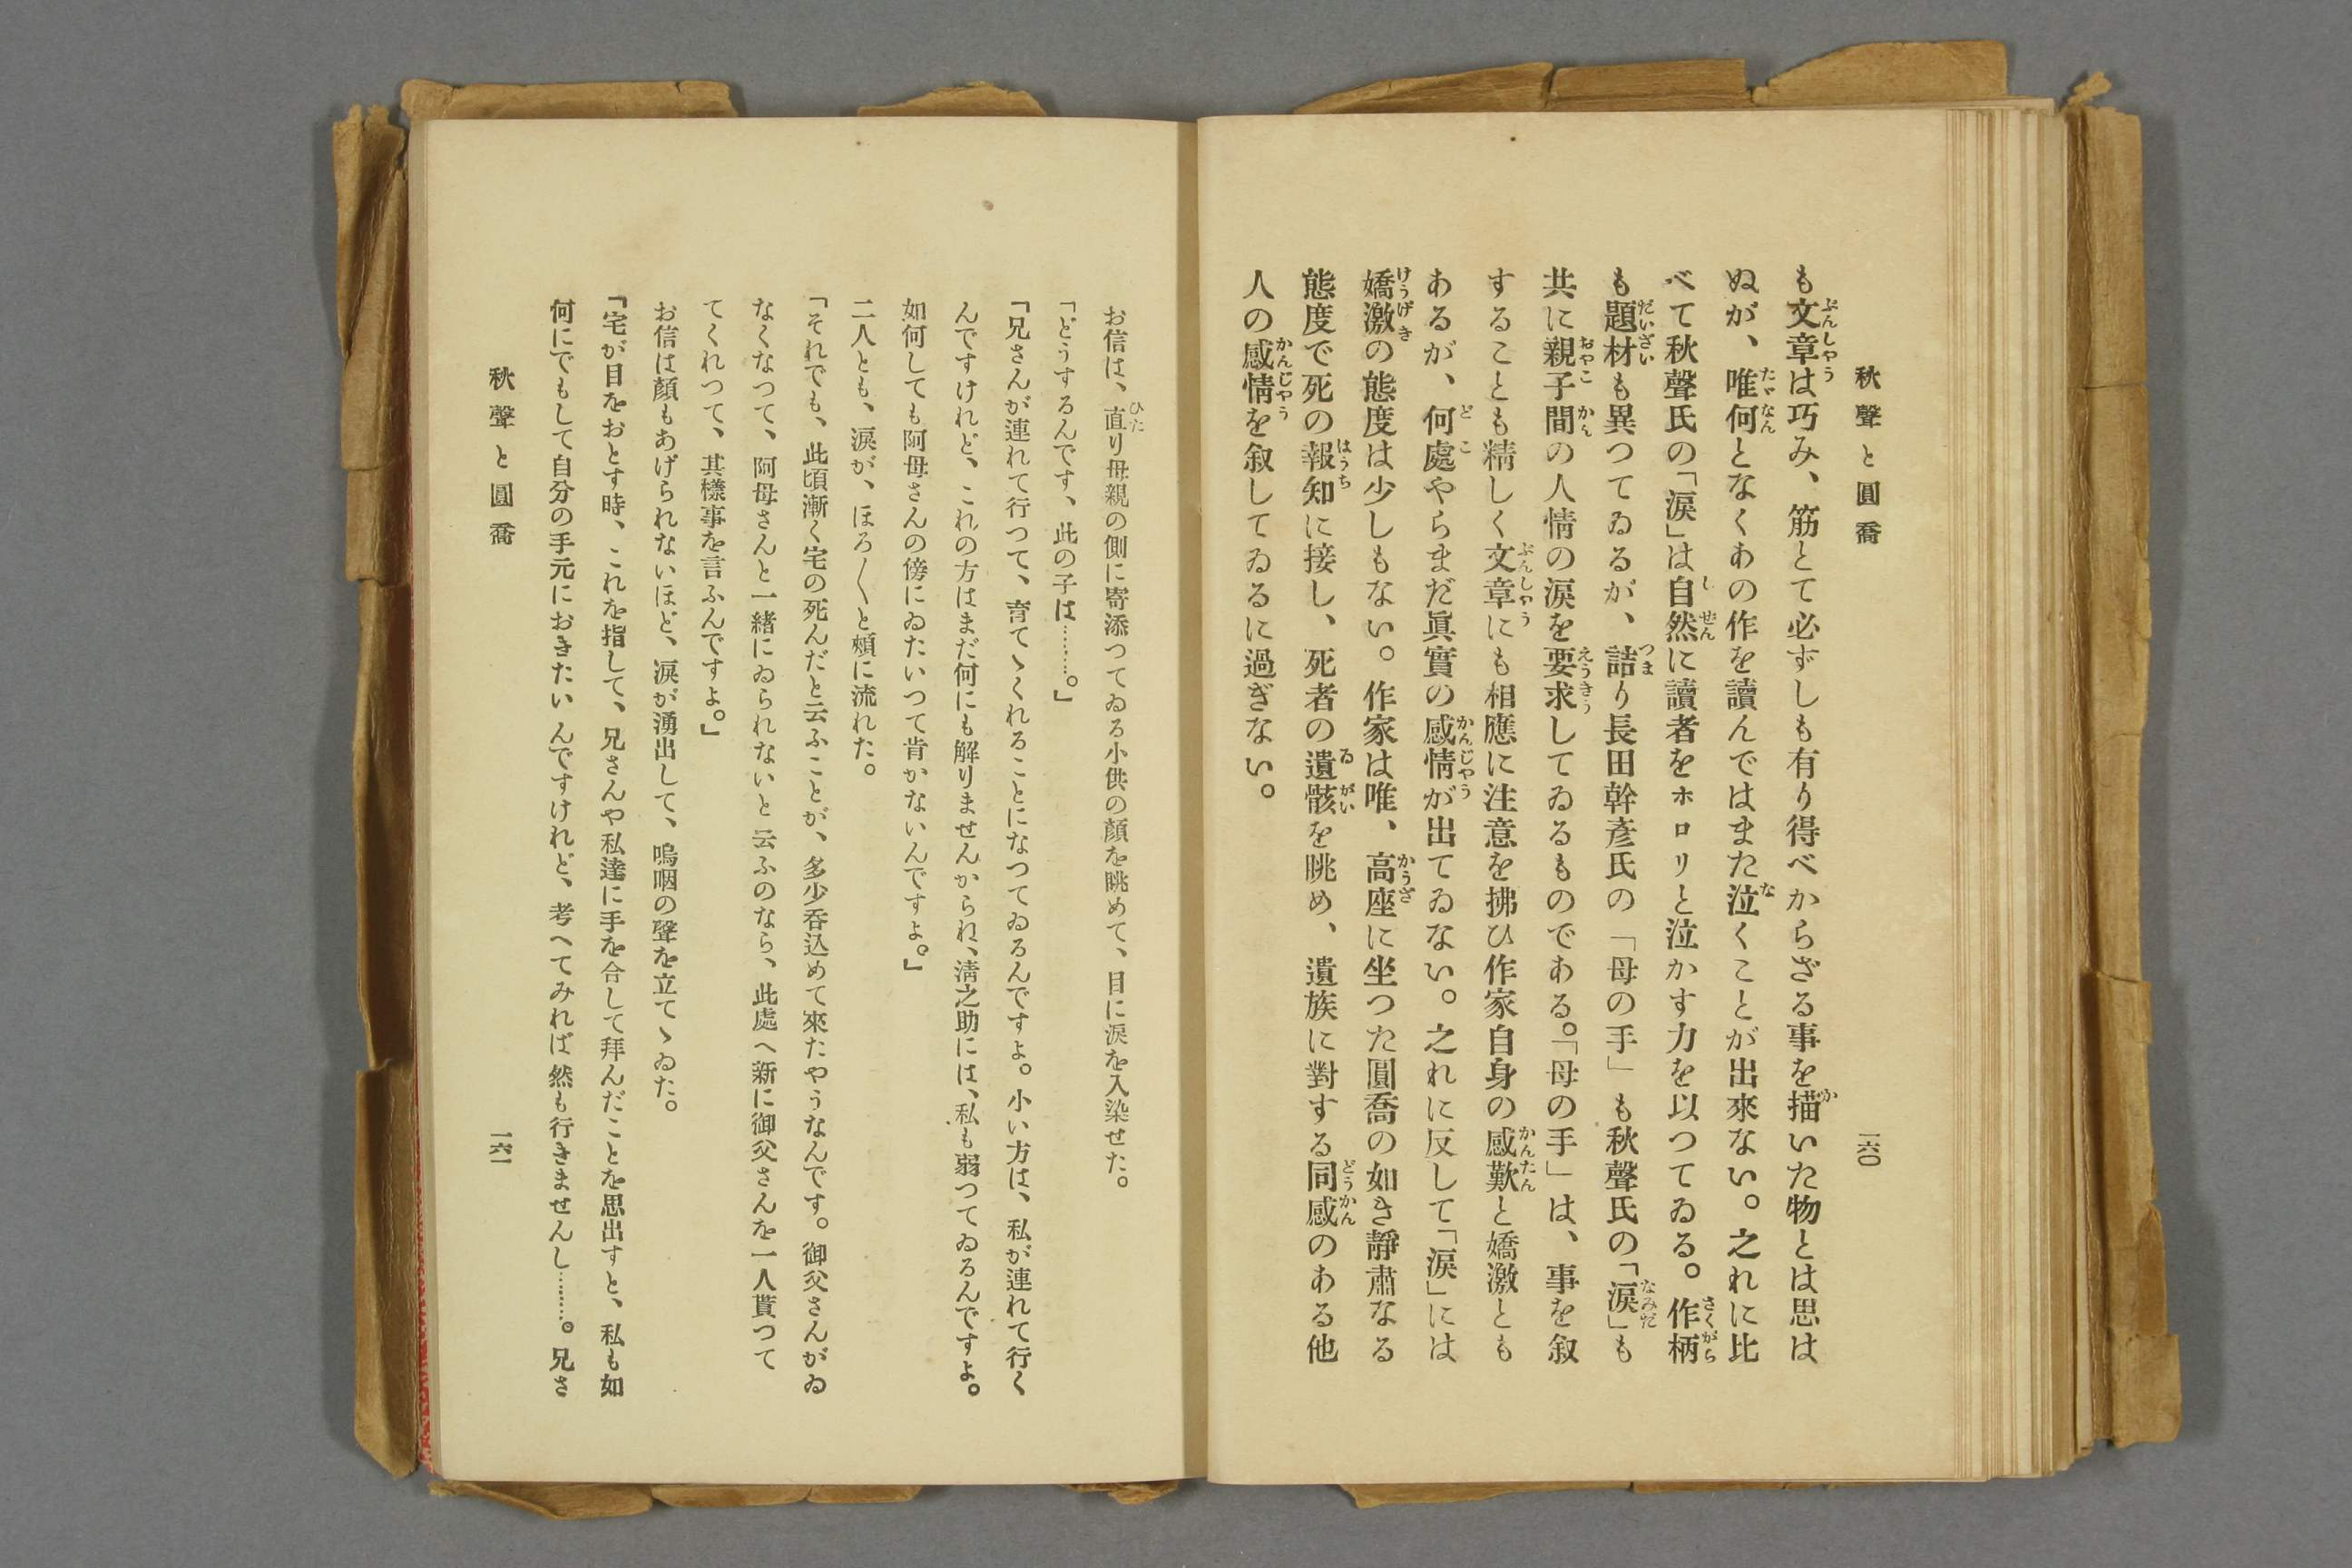 秋聲と圓喬
一六〇
も文章は巧み、筋とて必ずしも有り得べからざる事を描いた物とは思は
ぬが、唯何となくあの作を讀んではまた泣くことが出來ない。之れに比
べて秋聲氏の「涙」は自然に讀者をホロリと泣かす力を以つてゐる。作柄
も題材も異つてゐるが、詰り長田幹彦氏の「母の手」も秋聲氏の「涙」も
共に親子間の人情の涙を要求してゐるものである。「母の手」は、事を叙
することも精しく文章にも相應に注意を拂ひ作家自身の感歎と嬌激とも
あるが、何處やらまだ眞實の感情が出てゐない。之れに反して「涙」には
嬌激の態度は少しもない。作家は唯、高座に坐つた圓喬の如き靜肅なる
態度で死の報知に接し、死者の遺骸を眺め、遺族に對する同感のある他
人の感情を叙してゐるに過ぎない。
お信は、直り母親の側に寄添つてゐる小供の顔を眺めて、目に涙を入染せた。
「どうするんです、此の子は………。」
「兄さんが連れて行つて、育てゝくれることになつてゐるんですよ。小い方は、私が連れて行く
んですけれど、これの方はまだ何にも解りませんからね、淸之助には、私も弱つてゐるんですよ。
如何しても阿母さんの傍にゐたいつて肯かないんですよ。」
二人とも、涙が、ほろ〱と頰に流れた。
「それでも、此頃漸く宅の死んだと云ふことが、多少呑込めて來たやうなんです。御父さんがゐ
なくなつて、阿母さんと一緒にゐられないと云ふのなら、此處へ新に御父さんを一人貰つて
てくれつて、其樣事を言ふんですよ。」
お信は顏もあげられないほど、涙が湧出して、嗚咽の聲を立てゝゐた。
「宅が目をおとす時、これを指して、兄さんや私達に手を合して拜んだことを思出すと、私も如
何にでもして自分の手元におきたいんですけれど、考へてみれば然も行きませんし………。兄さ
秋聲と圓喬
一六一